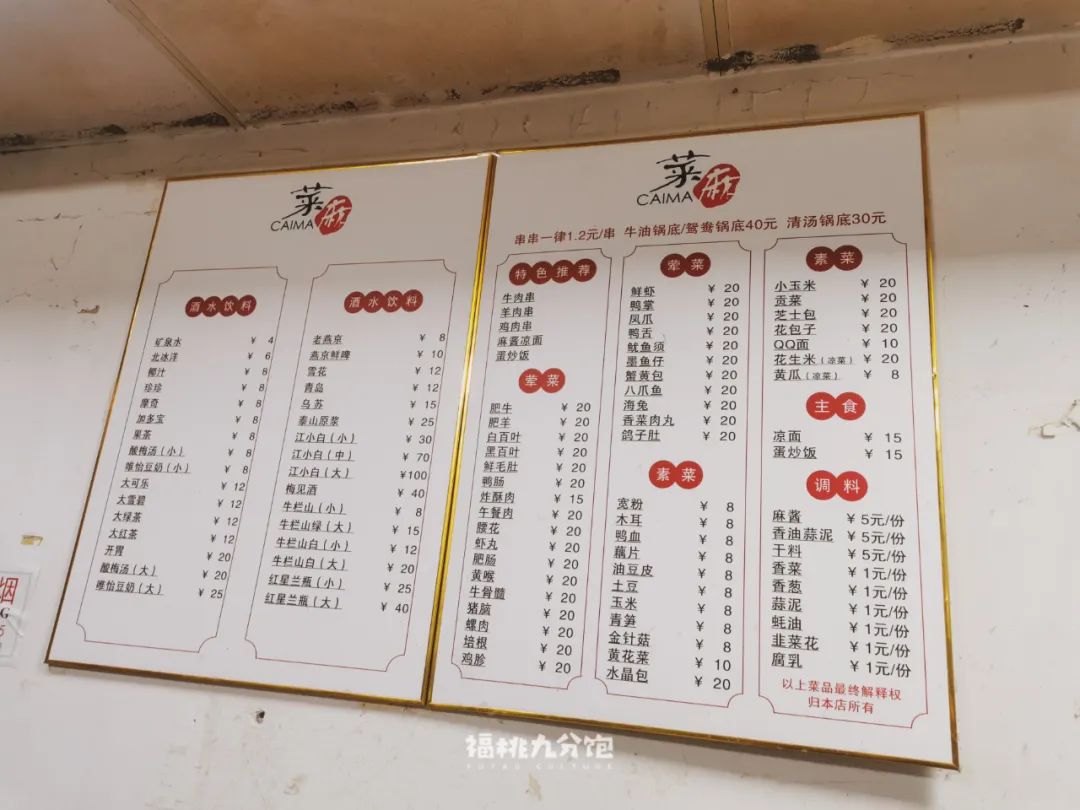 菜麻
CAIMA
酒水饮料
矿泉水 ¥ 4
北冰洋 ¥ 6
椰汁 ¥ 8
珍珍 ¥ 8
摩奇 ¥ 8
加多宝 ¥ 8
果茶 ¥ 8
酸梅汤（小） ¥ 8
唯怡豆奶（小） ¥ 8
大可乐 ¥ 12
大雪碧 ¥ 12
大绿茶 ¥ 12
大红茶 ¥ 12
开胃 ¥ 20
酸梅汤（大） ¥ 20
唯怡豆奶（大） ¥ 25
酒水饮料
老燕京 ¥ 8
燕京鲜啤 ¥ 10
雪花 ¥ 12
青岛 ¥ 12
乌苏 ¥ 15
泰山原浆 ¥ 25
江小白（小） ¥ 30
江小白（中） ¥ 70
江小白（大） ¥100
梅见酒 ¥ 40
牛栏山（小） ¥ 8
牛栏山绿（大） ¥ 15
牛栏山白（小） ¥ 12
牛栏山白（大） ¥ 20
红星兰瓶（小） ¥ 25
红星兰瓶（大） ¥ 40
菜麻
CAIMA
串串一律1.2元/串 牛油锅底/鸳鸯锅底40元 清汤锅底30元
特色推荐
牛肉串
羊肉串
鸡肉串
麻酱凉面
蛋炒饭
荤菜
肥牛 ¥ 20
肥羊 ¥ 20
白百叶 ¥ 20
黑百叶 ¥ 20
鲜毛肚 ¥ 20
鸭肠 ¥ 20
炸酥肉 ¥ 15
午餐肉 ¥ 20
腰花 ¥ 20
虾丸 ¥ 20
肥肠 ¥ 20
黄喉 ¥ 20
牛骨髓 ¥ 20
猪脑 ¥ 20
螺肉 ¥ 20
培根 ¥ 20
鸡胗 ¥ 20
荤菜
鲜虾 ¥ 20
鸭掌 ¥ 20
凤爪 ¥ 20
鸭舌 ¥ 20
鱿鱼须 ¥ 20
墨鱼仔 ¥ 20
蟹黄包 ¥ 20
八爪鱼 ¥ 20
海兔 ¥ 20
香菜肉丸 ¥ 20
鸽子肚 ¥ 20
素菜
宽粉 ¥ 8
木耳 ¥ 8
鸭血 ¥ 8
藕片 ¥ 8
油豆皮 ¥ 8
土豆 ¥ 8
玉米 ¥ 8
青笋 ¥ 8
金针菇 ¥ 8
黄花菜 ¥ 10
水晶包 ¥ 20
素菜
小玉米 ¥ 20
贡菜 ¥ 20
芝士包 ¥ 20
花包子 ¥ 20
QQ面 ¥ 10
花生米（凉菜） ¥ 20
黄瓜（凉菜） ¥ 8
主食
凉面 ¥ 15
蛋炒饭 ¥ 15
调料
麻酱 ¥ 5元/份
香油蒜泥 ¥ 5元/份
干料 ¥ 5元/份
香菜 ¥ 1元/份
香葱 ¥ 1元/份
蒜泥 ¥ 1元/份
蚝油 ¥ 1元/份
韭菜花 ¥ 1元/份
腐乳 ¥ 1元/份
以上菜品最终解释权
归本店所有
烟
G
5
福桃九分饱
FUTAO CULTURE